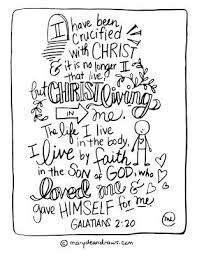 I have been
crucified
with CHRIST
& it is no longer I
that live,
but CHRIST living
IN me.
The life I live
in the body,
I live by faith
in the SON of GOD, who
loved me &
gave HIMSELF for me
GALATIANS 2:20
me
© marydeandraws.com